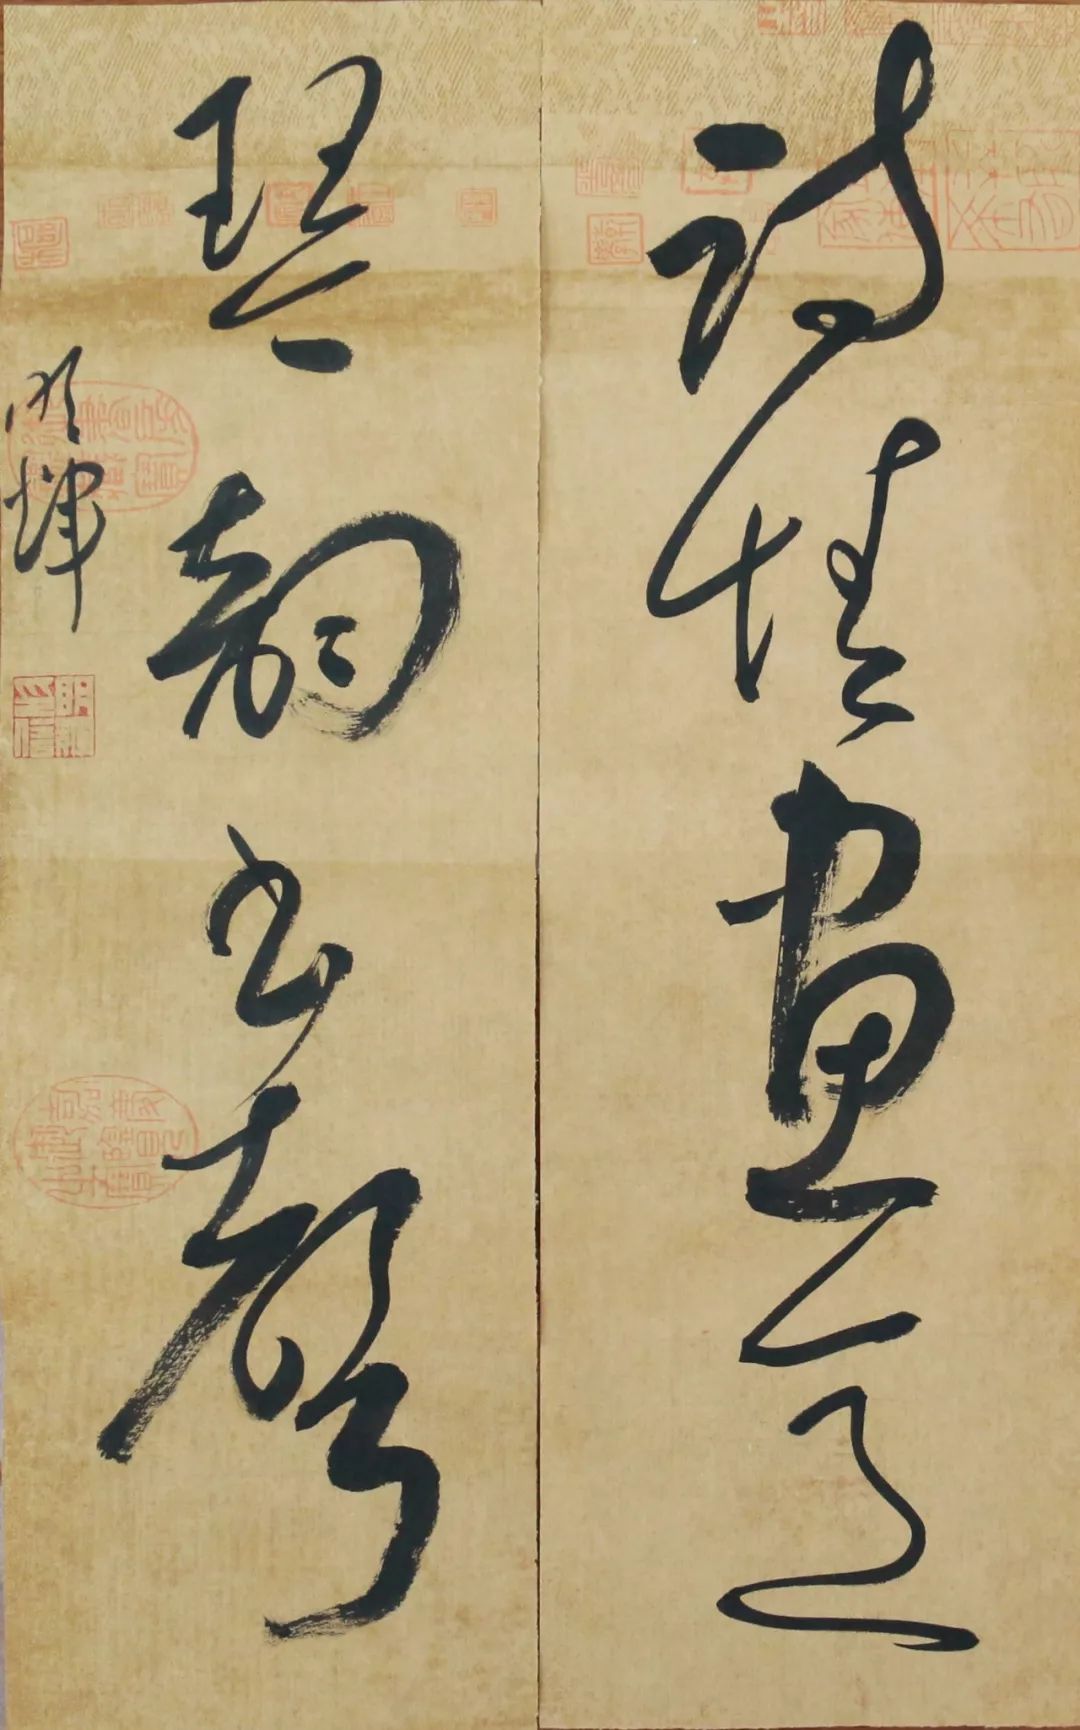 詩情畫意
琴韻書聲
明輝